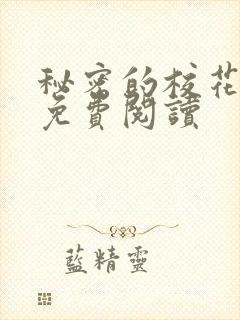 秘密的校花
免費閱讀
藍精靈